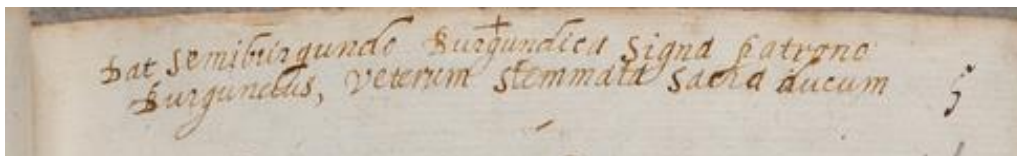 Dat semiburgundo Burgundica Signa patrono
Burgundus, Veterum Stemmata Sacra ducum
5